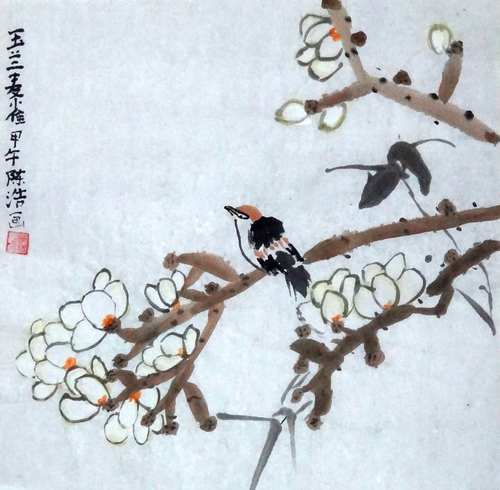 玉兰麦雀甲午陈浩画